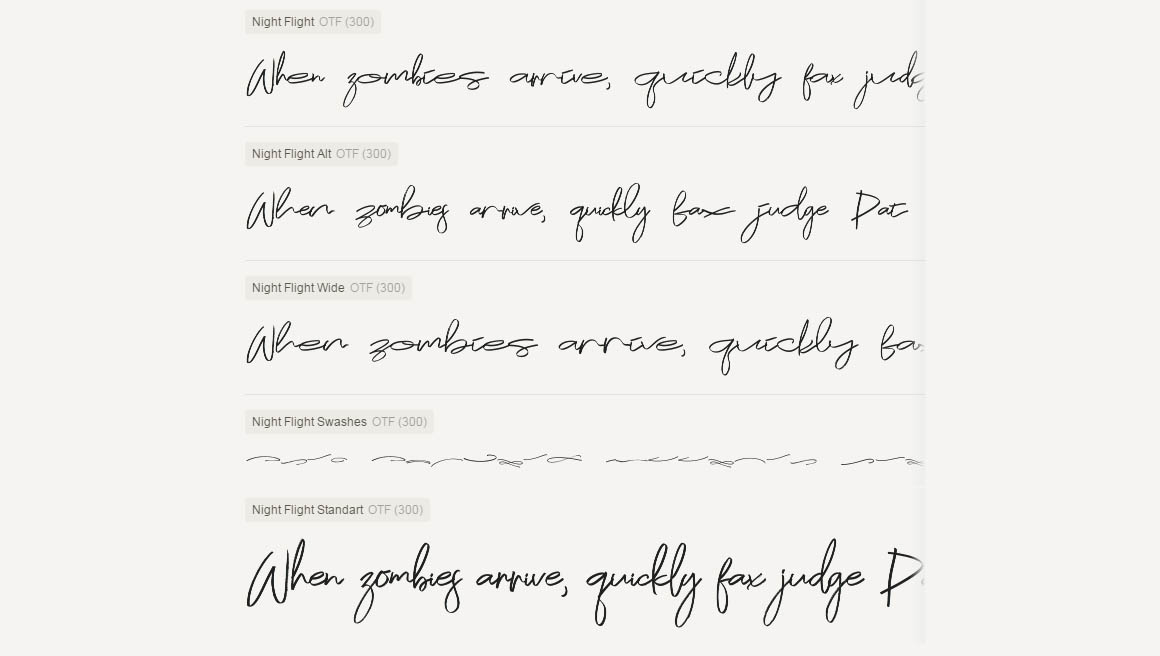 Night Flight OTF (300)
When zombies arrive, quickly fax judg
Night Flight Alt OTF (300)
When zombies arrive, quickly fax judge Pat
Night Flight Wide OTF (300)
When zombies arrive, quickly fa
Night Flight Swashes OTF (300)
Night Flight Standart OTF (300)
When zombies arrive, quickly fax judge P